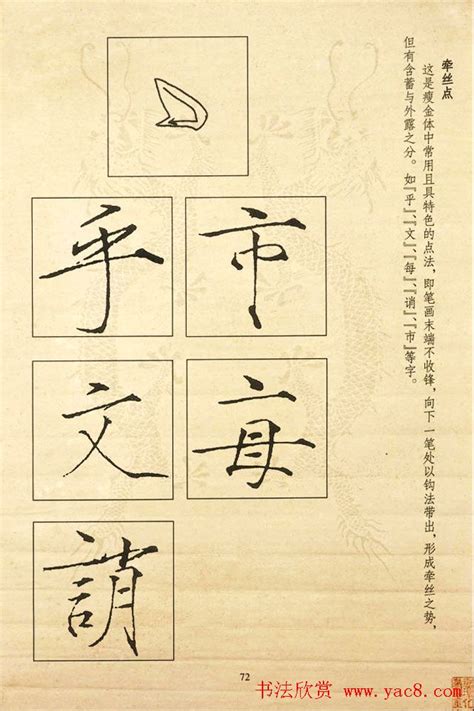 牵丝点
这是瘦金体中常用且具特色的点法，即笔画末端不收锋，向下一笔处以钩法带出，形成牵丝之势，
但有含蓄与外露之分。如『乎』、『文』、『每』、『诮』、『市』等字。
乎 市
文 每
誚
72
书法欣赏 www.yac8.com